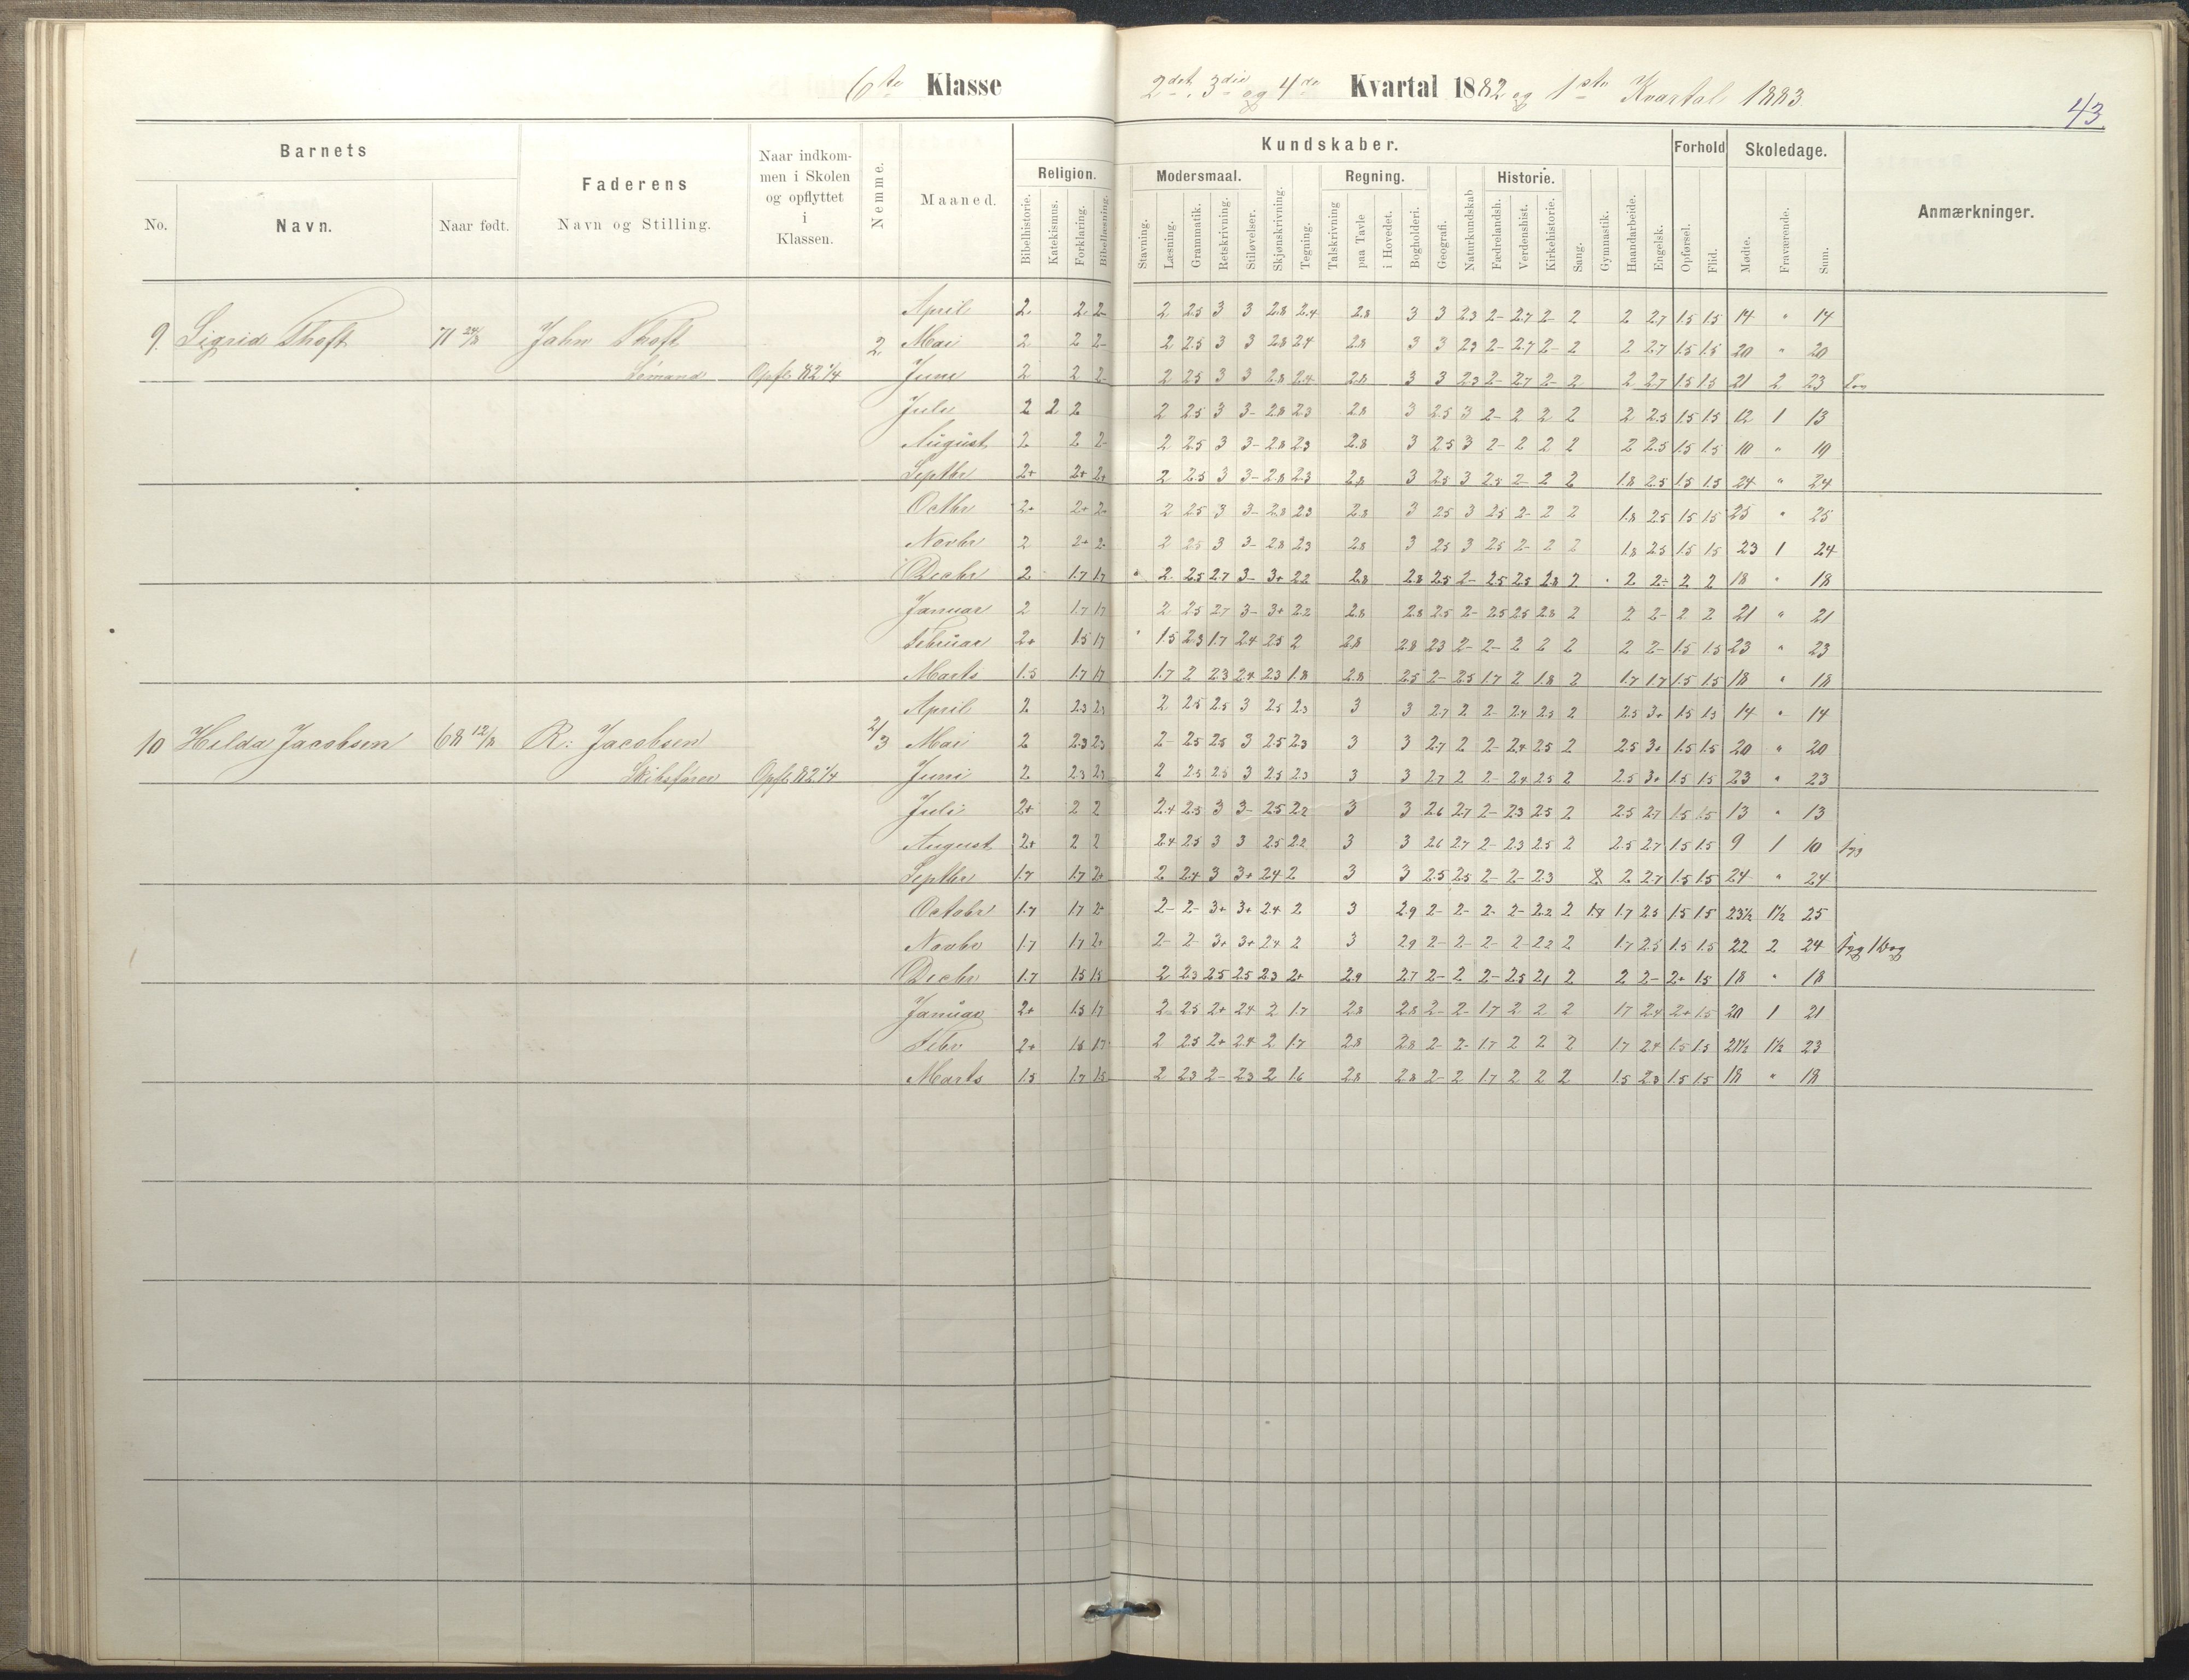 6te Klasse
2det, 3die og 4de Kvartal 1882 og 1ste Kvartal 1883.
43
Barnets
No.
Navn.
Naar født.
Faderens
Navn og Stilling.
Naar indkom-
men i Skolen
og opflyttet
i
Klassen.
Nemme.
Maaned.
Kundskaber.
Religion.
Bibelhistorie.
Katekismus.
Forklaring.
Bibellæsning.
Modersmaal.
Stavning.
Læsning.
Grammatik.
Retskrivning.
Stiløvelser.
Skjønskrivning.
Tegning.
Regning.
Talskrivning
paa Tavle
i Hovedet.
Bogholderi.
Geografi.
Naturkundskab
Historie.
Fædrelandsh.
Verdenshist.
Kirkehistorie.
Sang.
Gymnastik.
Haandarbeide.
Engelsk.
Forhold
Opførsel.
Flid.
Skoledage.
Mødte.
Fraværende.
Sum.
Anmærkninger.
April 2 2 2- 2 2.5 3 3 2.8 2.4 2.8 3 3 2.3 2- 2.7 2- 2 2 2.7 1.5 1.5 14 " 14
9. Sigrid Thoft 71 24/8 John Thoft 2 Mai 2 2 2- 2 2.5 3 3 2.8 2.4 2.8 3 3 2.3 2- 2.7 2- 2 2 2.7 1.5 1.5 20 " 20
Sømand Opfl. 82 1/4 Juni 2 2 2- 2 2.5 3 3 2.8 2.4 2.8 3 3 2.3 2- 2.7 2- 2 2 2.7 1.5 1.5 21 2 23
Juli 2 2 2 2 2.5 3 3- 2.8 2.3 2.8 3 2.5 3 2- 2 2 2 2 2.5 1.5 1.5 12 1 13
August 2 2 2- 2 2.5 3 3- 2.8 2.3 2.8 3 2.5 3 2- 2 2 2 2 2.5 1.5 1.5 10 " 10
Septbr 2+ 2+ 2+ 2 2.5 3 3- 2.8 2.3 2.8 3 2.5 3 2.5 2- 2 2 1.8 2.5 1.5 1.5 24 " 24
Octbr 2+ 2+ 2- 2 2.5 3 3- 2.8 2.3 2.8 3 2.5 3 2.5 2- 2 2 1.8 2.5 1.5 1.5 25 " 25
Novbr 2 2+ 2- 2 2.5 3 3- 2.8 2.3 2.8 3 2.5 3 2.5 2- 2 2 1.8 2.5 1.5 1.5 23 1 24
Decbr 2 1.7 1.7 " 2 2.5 2.7 3- 3+ 2.2 2.8 2.8 2.5 2- 2.5 2.5 2.8 2 " 2 2- 2 2 18 " 18
Januar 2 1.7 1.7 2 2.5 2.7 3- 3+ 2.2 2.8 2.8 2.5 2- 2.5 2.5 2.8 2 2 2- 2 2 21 " 21
Februar 2+ 1.5 1.7 " 1.5 2.3 1.7 2.4 2.5 2 2.8 2.8 2.3 2- 2- 2 2 2 2 2- 1.5 1.5 23 " 23
Marts 1.5 1.7 1.7 1.7 2 2.3 2.4 2.3 1.8 2.8 2.5 2- 2.5 1.7 2 1.8 2 1.7 1.7 1.5 1.5 18 " 18
April 2 2.3 2.3 2 2.5 2.5 3 2.5 2.3 3 3 2.7 2 2- 2.4 2.5 2 2.5 3+ 1.5 1.5 14 " 14
10 Hilda Jacobsen 68 12/8 R: Jacobsen 2/3 Mai 2 2.3 2.3 2- 2.5 2.5 3 2.5 2.3 3 3 2.7 2 2- 2.4 2.5 2 2.5 3+ 1.5 1.5 20 " 20
Skibsfører Opfl. 82 1/4 Juni 2 2.3 2.3 2 2.5 2.5 3 2.5 2.3 3 3 2.7 2 2- 2.4 2.5 2 2.5 3+ 1.5 1.5 23 " 23
Juli 2+ 2 2 2.4 2.5 3 3- 2.5 2.2 3 3 2.6 2.7 2- 2.3 2.5 2 2.5 2.7 1.5 1.5 13 " 13
August 2+ 2 2 2.4 2.5 3 3 2.5 2.2 3 3 2.6 2.7 2- 2.3 2.5 2 2.5 2.7 1.5 1.5 9 1 10
Septbr 1.7 1.7 2+ 2 2.4 3 3+ 2.4 2 3 3 2.5 2.5 2- 2- 2.3 2 2 2.7 1.5 1.5 24 " 24
Octobr 1.7 1.7 2+ 2- 2- 3+ 3+ 2.4 2 3 2.9 2- 2- 2- 2- 2.2 2 1.7 2.5 1.5 1.5 23½ 1½ 25
Novbr 1.7 1.7 2+ 2- 2- 3+ 3+ 2.4 2 3 2.9 2- 2- 2- 2- 2.2 2 1.7 2.5 1.5 1.5 22 2 24
Decbr 1.7 1.5 1.5 2 2.3 2.5 2.5 2.3 2+ 2.9 2.7 2- 2 2- 2.5 2.1 2 2 2- 2+ 1.5 18 " 18
Januar 2+ 1.5 1.7 2 2.5 2+ 2.4 2 1.7 2.8 2.8 2- 2- 1.7 2 2 2 1.7 2.4 2+ 1.5 20 1 21
Febr 2+ 1.6 1.7 2 2.5 2+ 2.4 2 1.7 2.8 2.8 2- 2- 1.7 2 2 2 1.7 2.4 1.5 1.5 21½ 1½ 23
Marts 1.5 1.7 1.5 2 2.3 2- 2.3 2 1.6 2.8 2.8 2- 2 1.7 2 2 2 1.5 2.3 1.5 1.5 18 " 18